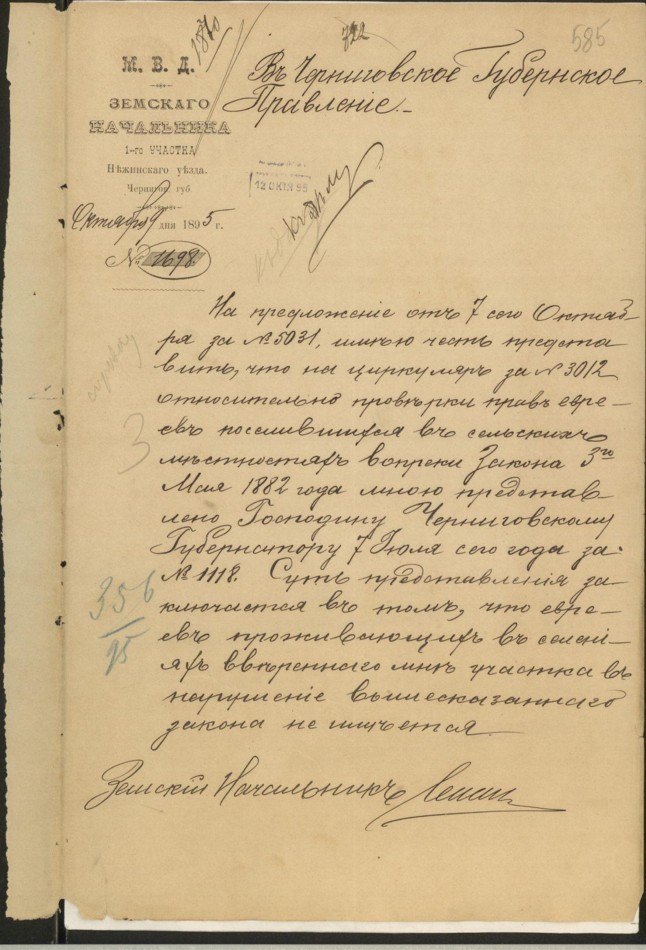 585
722
1870
М. В. Д.
ЗЕМСКАГО
НАЧАЛЬНИКА
1-го УЧАСТКА
Нѣжинскаго уѣзда.
Чернигов. губ.
Октября 9 дня 1895 г.
№ 1698
Въ Черниговское Губернское
Правленіе.
12 ОКТЯ 95
На предложеніе отъ 7 сего Октяб-
ря за № 5031, имѣю честь предста
вить, что на циркуляръ за № 3012
относительно провѣрки правъ евре-
евъ поселившихся въ сельскихъ
мѣстностяхъ вопреки Закона 3го
Мая 1882 года мною представ
лено Господину Черниговскому
Губернатору 7 Іюля сего года за
№ 1118. Суть представленія за-
ключается въ томъ, что евре-
евъ проживающихъ въ селені-
яхъ ввѣреннаго мнѣ участка въ
нарушеніе вышесказаннаго
закона не имѣется.
356
95
3
Земскій Начальникъ